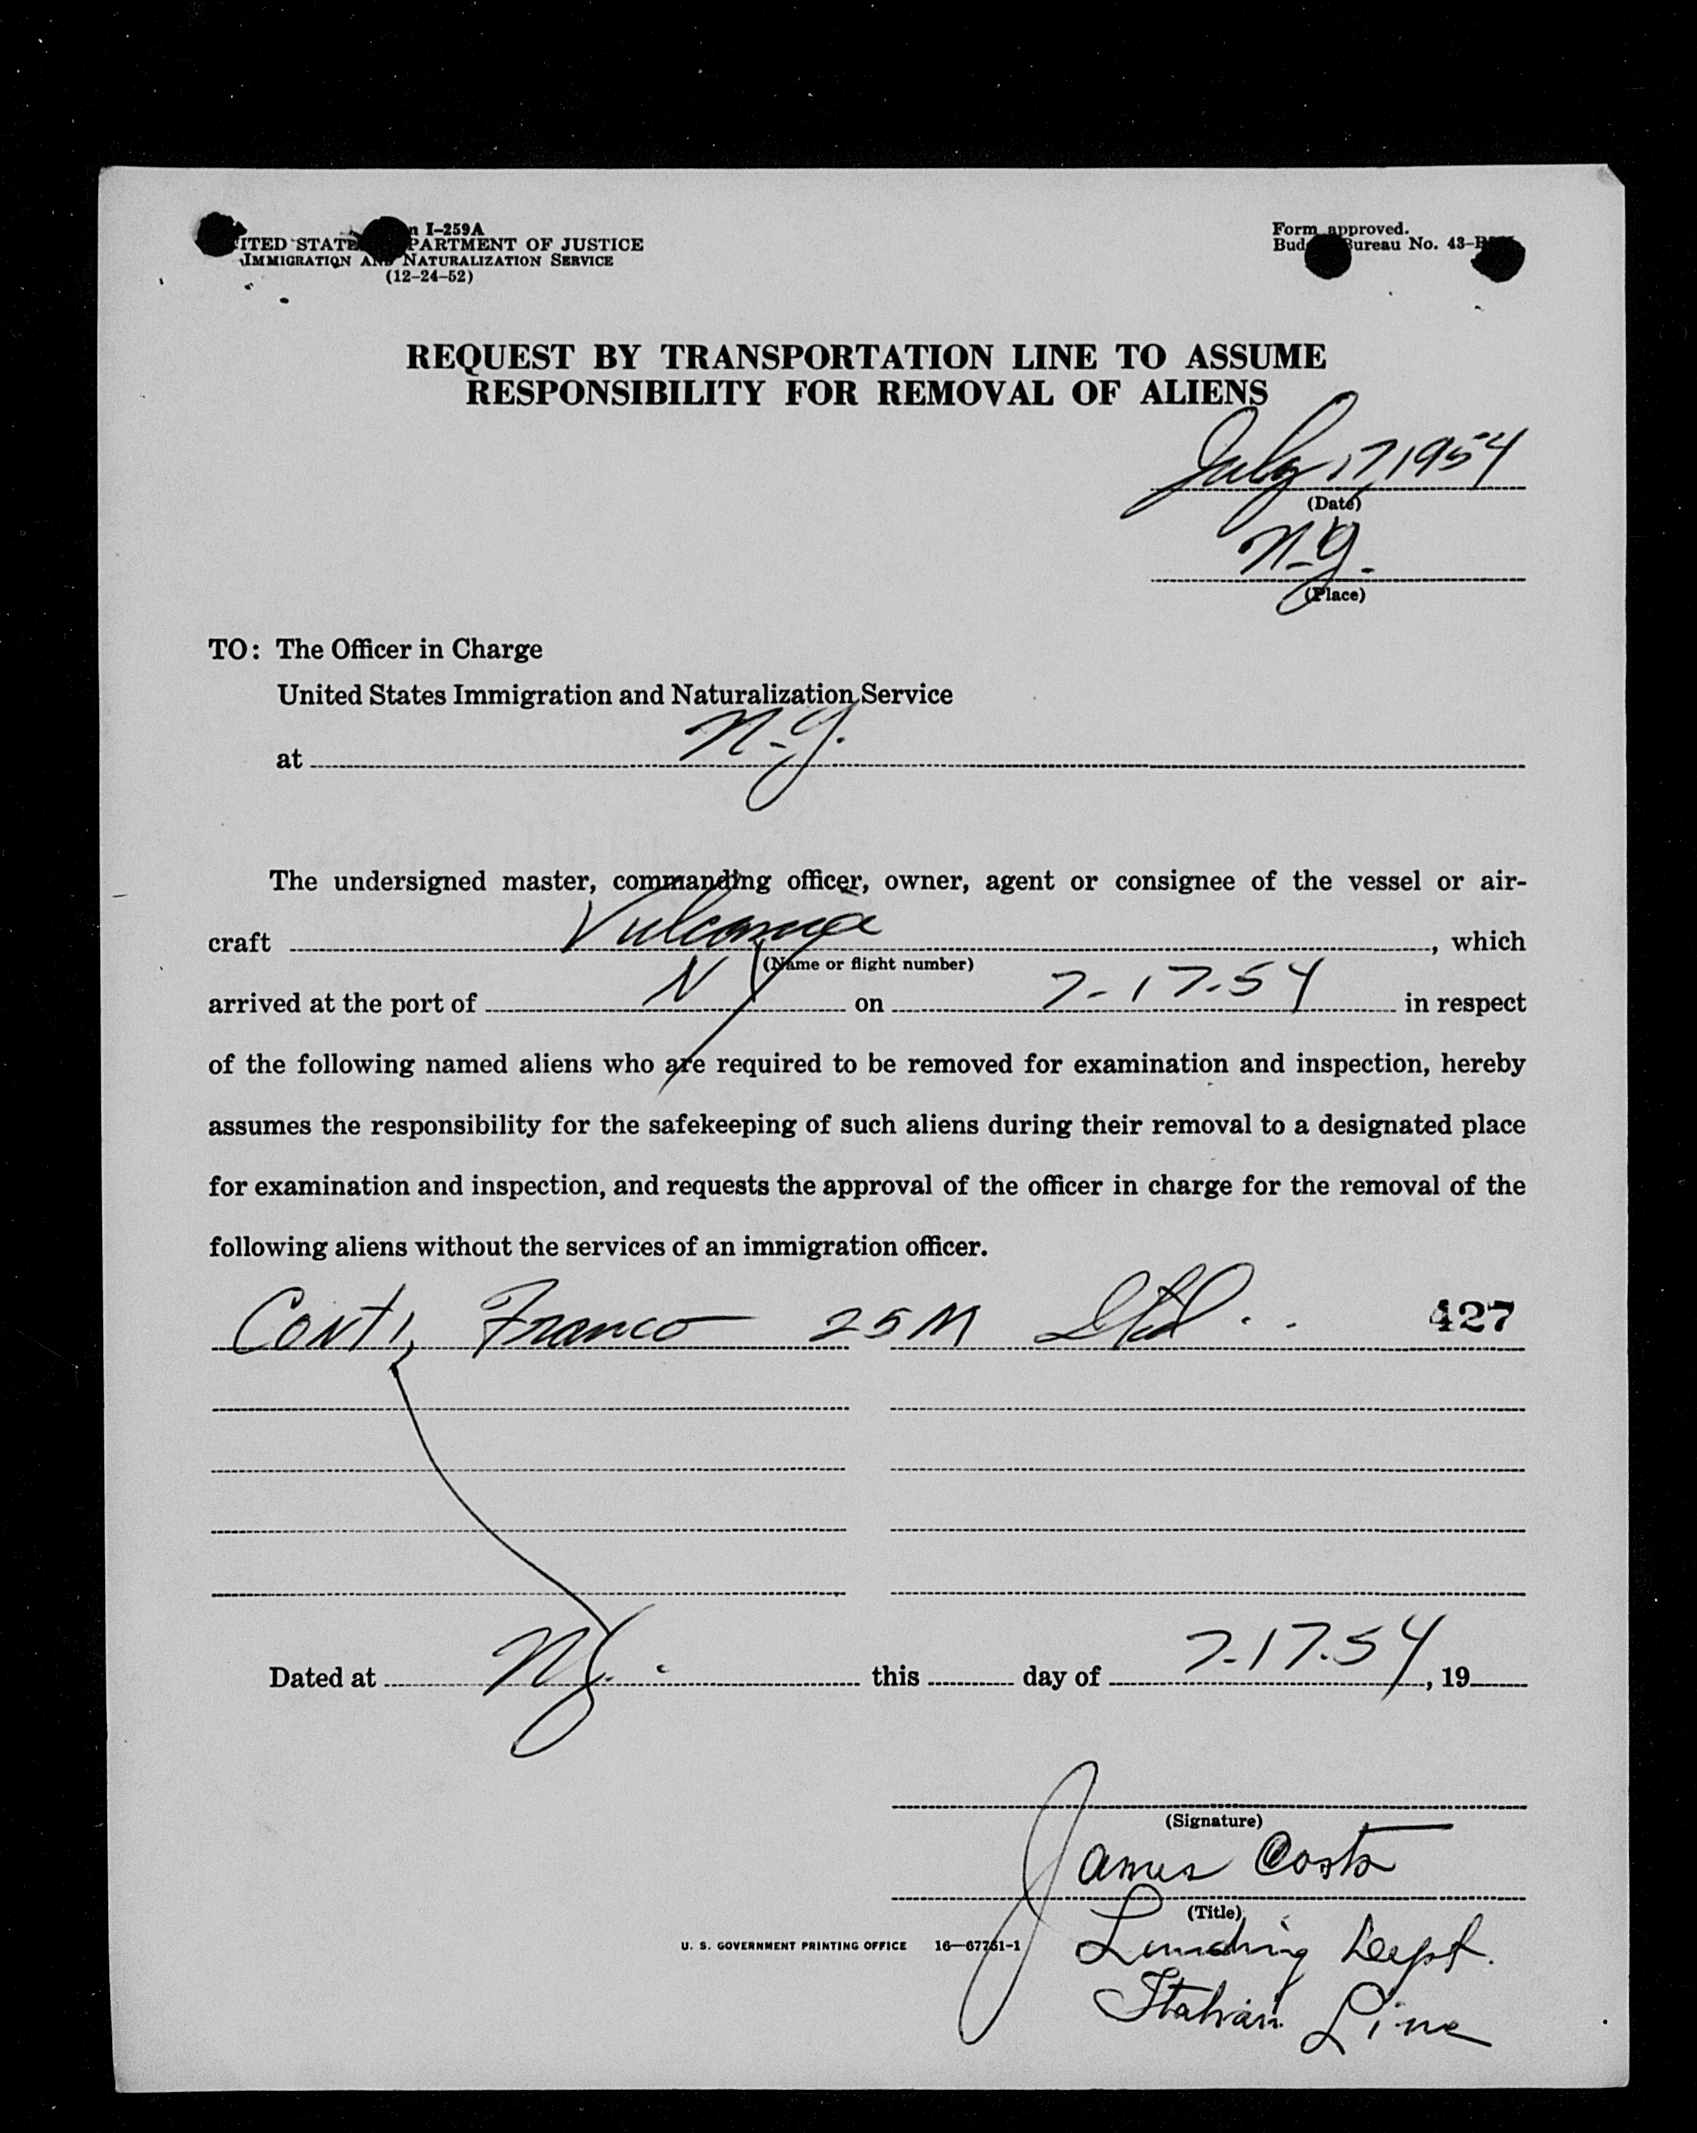 I-259A
STATE PARTMENT OF JUSTICE
IMMIGRATION AND NATURALIZATION SERVICE
(12-24-52)
Form approved.
Bureau No. 43-
REQUEST BY TRANSPORTATION LINE TO ASSUME
RESPONSIBILITY FOR REMOVAL OF ALIENS
July 17, 1954
(Date)
N.Y.
(Place)
TO: The Officer in Charge
United States Immigration and Naturalization Service
at N.Y.
The undersigned master, commanding officer, owner, agent or consignee of the vessel or air-
craft Vulcania, which
(Name or flight number)
arrived at the port of NY on 7-17-54 in respect
of the following named aliens who are required to be removed for examination and inspection, hereby
assumes the responsibility for the safekeeping of such aliens during their removal to a designated place
for examination and inspection, and requests the approval of the officer in charge for the removal of the
following aliens without the services of an immigration officer.
Conti, Franco 25 M Ital. 427
Dated at NY. this day of 7-17-54, 19
(Signature)
James Costa
(Title)
Landing Dept.
U. S. GOVERNMENT PRINTING OFFICE 16—67751-1
Italian Line